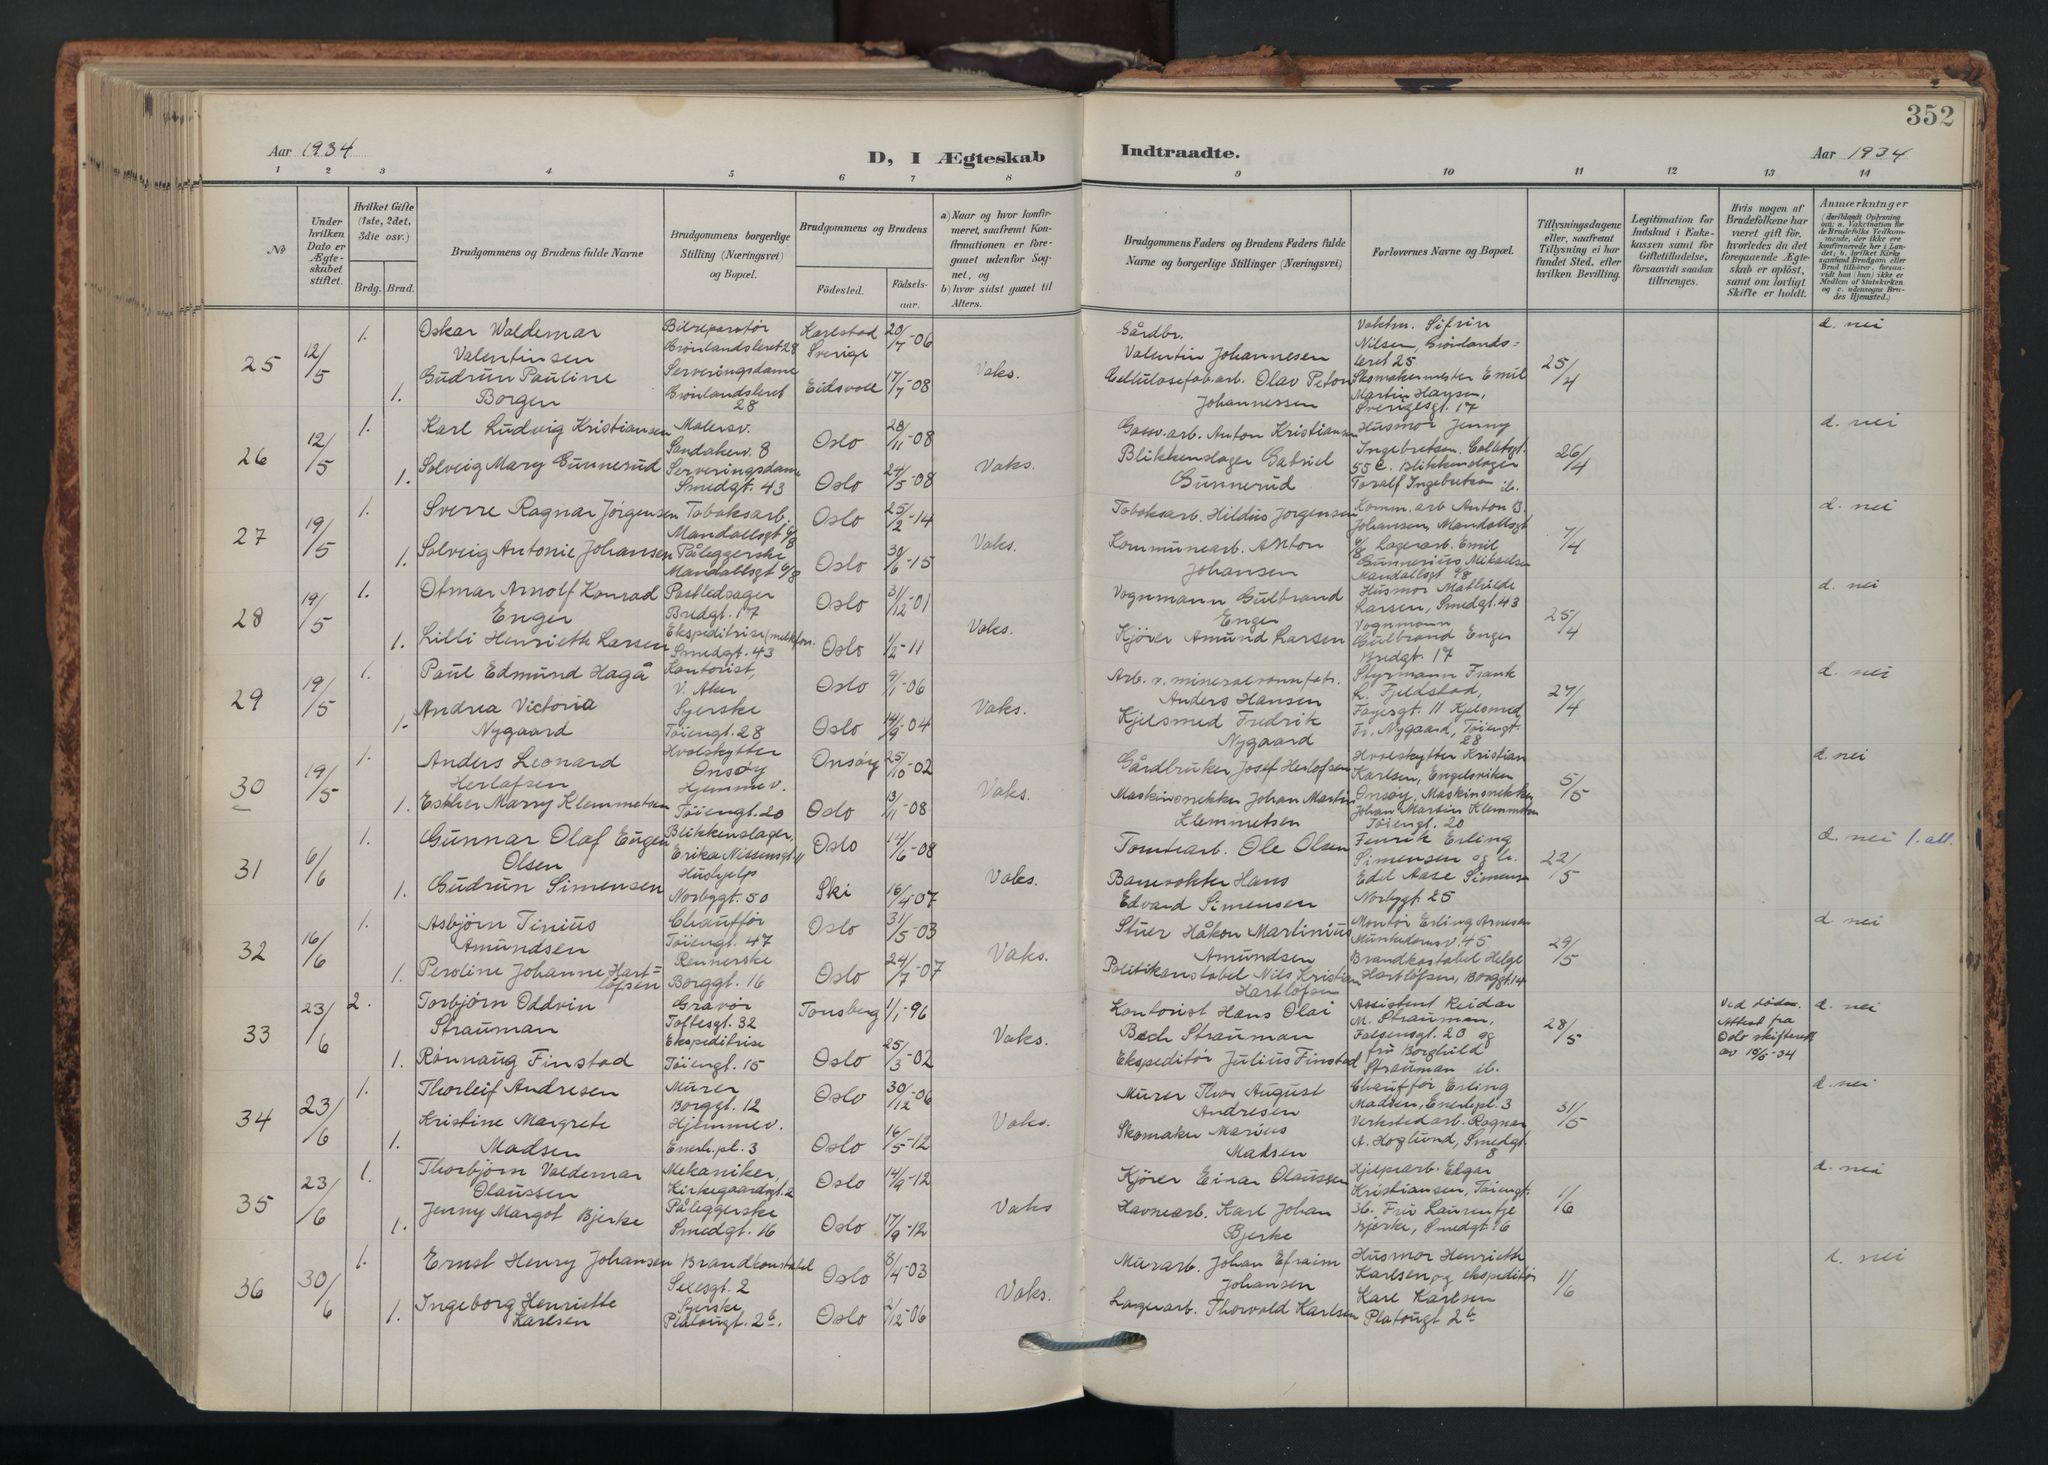 352
Aar 1934
D, I Ægteskab
Indtraadte.
Aar 1934
1 2 3 4 5 6 7 8 9 10 11 12 13 14
No
Under hvilken Dato er Ægteskabet stiftet.
Hvilket Gifte (1ste, 2det, 3die osv.)
Brdg. Brud.
Brudgommens og Brudens fulde Navne
Brudgommens borgerlige Stilling (Næringsvei) og Bopæl.
Brudgommens og Brudens
Födested.
Födselsaar.
a) Naar og hvor konfirmeret, saafremt Konfirmationen er foregaaet udenfor Sognet, og
b) hvor sidst gaaet til Alters.
Brudgommens Faders og Brudens Faders fulde Navne og borgerlige Stillinger (Næringsvei)
Forlovernes Navne og Bopæl.
Tillysningsdagene eller, saafremt Tillysning ei har fundet Sted, efter hvilken Bevilling.
Legitimation for Indskud i Enkekassen samt for Giftetilladelse, forsaavidt saadan tiltrænges.
Hvis nogen af Brudefolkene har været gift för, hvorledes da det foregaaende Ægteskab er oplöst, samt om lovligt Skifte er holdt.
Anmærkninger
(deriblandt Oplysning om: a. Vakcination for de Brudefolks Vedkommende, der ikke ere konfirmerede her i Landet; b. hvilket Kirkesamfund Brudgom eller Brud tilhörer, forsaavidt han (hun) ikke er Medlem af Statskirken og c. udensogns Brudes Hjemsted.)
25 12/5 1. Oskar Waldemar Valentinsen Bilreparatør Grønlandsleret 28 Karlstad Sverige 20/7-06 Vaks. Gårdbr. Valentin Johannesen Vaktm. Sifrin Nilsen, Grønlandsleret 25 25/4 d. nei
1. Gudrun Pauline Borgen Serveringsdame Grønlandsleret 28 Eidsvoll 17/7-08 Cellulosefab.arb. Olav Peton Johannessen Skomakermester Emil Martin Hansen, Sverigesgt. 17
26 12/5 1. Karl Ludvig Kristiansen Malersv. Sandakerv. 8 Oslo 28/11-08 Vaks. Gassv.arb. Anton Kristiansen Husmor Jenny Ingebretsen. Colletsgt. 55 c. 26/4 d. nei
1. Solveig Mary Gunnerud Serveringsdame Smedgt. 43 Oslo 24/5-08 Blikkenslager Gabriel Gunnerud Blikkenslager Toralf Ingebretsen ib.
27 19/5 1. Sverre Ragnar Jörgensen Tobaksarb. Mandallsgt 6/8 Oslo 25/2-14 Vaks. Tobaksarb. Hildus Jörgensen Komm.arb Anton B Johansen, Mandallsgt 6/8 7/4 d. nei
1. Solveig Antonie Johansen Påleggerske Mandallsgt 6/8 Oslo 30/6-15 Kommunearb. Anton Johansen Lagerarb. Emil Gunnerius Mikaelsen Mandallsgt 6/8
28 19/5 1. Otmar Arnolf Konrad Enger Postledsager Bredgt. 17 Oslo 31/12-01 Vaks. Vognmann Gulbrand Enger Husmor Mathilde Larsen, Smedgt. 43 25/4 d. nei
1. Lilli Henriette Larsen Ekspeditrise (melkfor. Smedgt. 43 Oslo 1/2-11 Kjører Amund Larsen Vognmann Gulbrand Enger Bredgt. 17
29 19/5 1. Paul Edmund Hagå Kontorist, V. Aker Oslo 9/1-06 Vaks. Arb. v. mineralvannfabr. Anders Hansen Styrmann Frank L. Fjeldstad, Fayesgt. 11 27/4 d. nei
1. Andrea Victoria Nygaard Syerske Töiengt. 28 Oslo 14/9-04 Kjelsmed Fredrik Nygaard Kjelsmed Fr. Nygaard, Töiengt. 28
30 19/5 1. Anders Leonard Herlofsen Hvalskytter Onsøy Onsøy 25/10-02 Vaks. Gårdbruker Josef Herlofsen Hvalskytter Kristian Karlsen, Engelsviken Onsøy, 5/5 d. nei
1. Esther Marry Klemmetsen Hjemmev. Töiengt. 20 Oslo 13/11-08 Maskinsnekker Johan Martin Klemmetsen Maskinsnekker Johan Martin Klemmetsen Töiengt. 20
31 6/6 1. Gunnar Olaf Eugen Olsen Blikkenslager, Erika Nissensgt. 11 Oslo 14/6-08 Vaks. Tomtearb. Ole Olsen Henrik Erling Simensen og fr. 22/5 d. nei 1. att.
1. Gudrun Simensen Hushjelp Norbygt. 50 Ski 16/4-07 Banevokter Hans Edvard Simensen Edel Aase Simensen Norbygt. 25
32 16/6 1. Asbjörn Tinius Amundsen Chauffør Töiengt. 47 Oslo 31/5-03 Vaks. Stuer Håkon Martinius Amundsen Montör Erling Arnesen Munkedamsv. 45 29/5 d. nei
1. Peroline Johanne Hartlöfsen Rennerske Borggt. 16 Oslo 24/7-07 Politikonstabel Nils Kristian Hartlöfsen Brandkostabel Helge Hartlöfsen, Borggt. 14
33 23/6 2. Torbjörn Oddvin Strauman Gravör Toftesgt. 32 Tønsberg 1/1-96 Vaks. Kontorist Hans Olai Bech Strauman Assistent Reidar M. Strauman, Falsensgt. 20 og 28/5 Ved döden. Attest fra Oslo skifterett av 19/5-34 d. nei
1. Rønnaug Finstad Ekspeditrise Töiengt. 15 Oslo 25/3-02 Ekspeditör Julius Finstad fru Borghild Strauman ib.
34 23/6 1. Thorleif Andresen Murer Borggt. 12 Oslo 30/12-06 Vaks. Murer Thor August Andresen Chauffør Erling Madsen, Enerh.pl. 3 31/5 d. nei
1. Kristine Margrete Madsen Hjemmev. Enerh.pl. 3 Oslo 16/5-12 Skomaker Marius Madsen Verkstedarb. Ragnar A. Hoglund, Smedgt. 8
35 23/6 1. Thorbjörn Valdemar Olaussen Mekaniker, Kirkegaardsgt. 2 Oslo 14/9-12 Vaks Kjörer Einar Olaussen Hjelpearb. Edgar Kristiansen, Töiengt. 36. 1/6 d. nei
1. Jenny Margot Bjerke Påleggerske Smedgt. 16 Oslo 17/9-12 Havnearb. Karl Johan Bjerke Fru Laurentje Bjerke, Smedgt. 16
36 30/6 1. Ernst Henry Johansen Brandkonstabel Sexesgt. 2 Oslo 8/4-03 Vaks. Murarb. Johan Efraim Johansen Husmor Henriette Karlsen og ekspeditör 1/6 d. nei
1. Ingeborg Henriette Karlsen Syerske Platougt. 2 b. Oslo 2/12-06 Lagerarb. Thorvald Karlsen Karl Karlsen Platougt 2 b